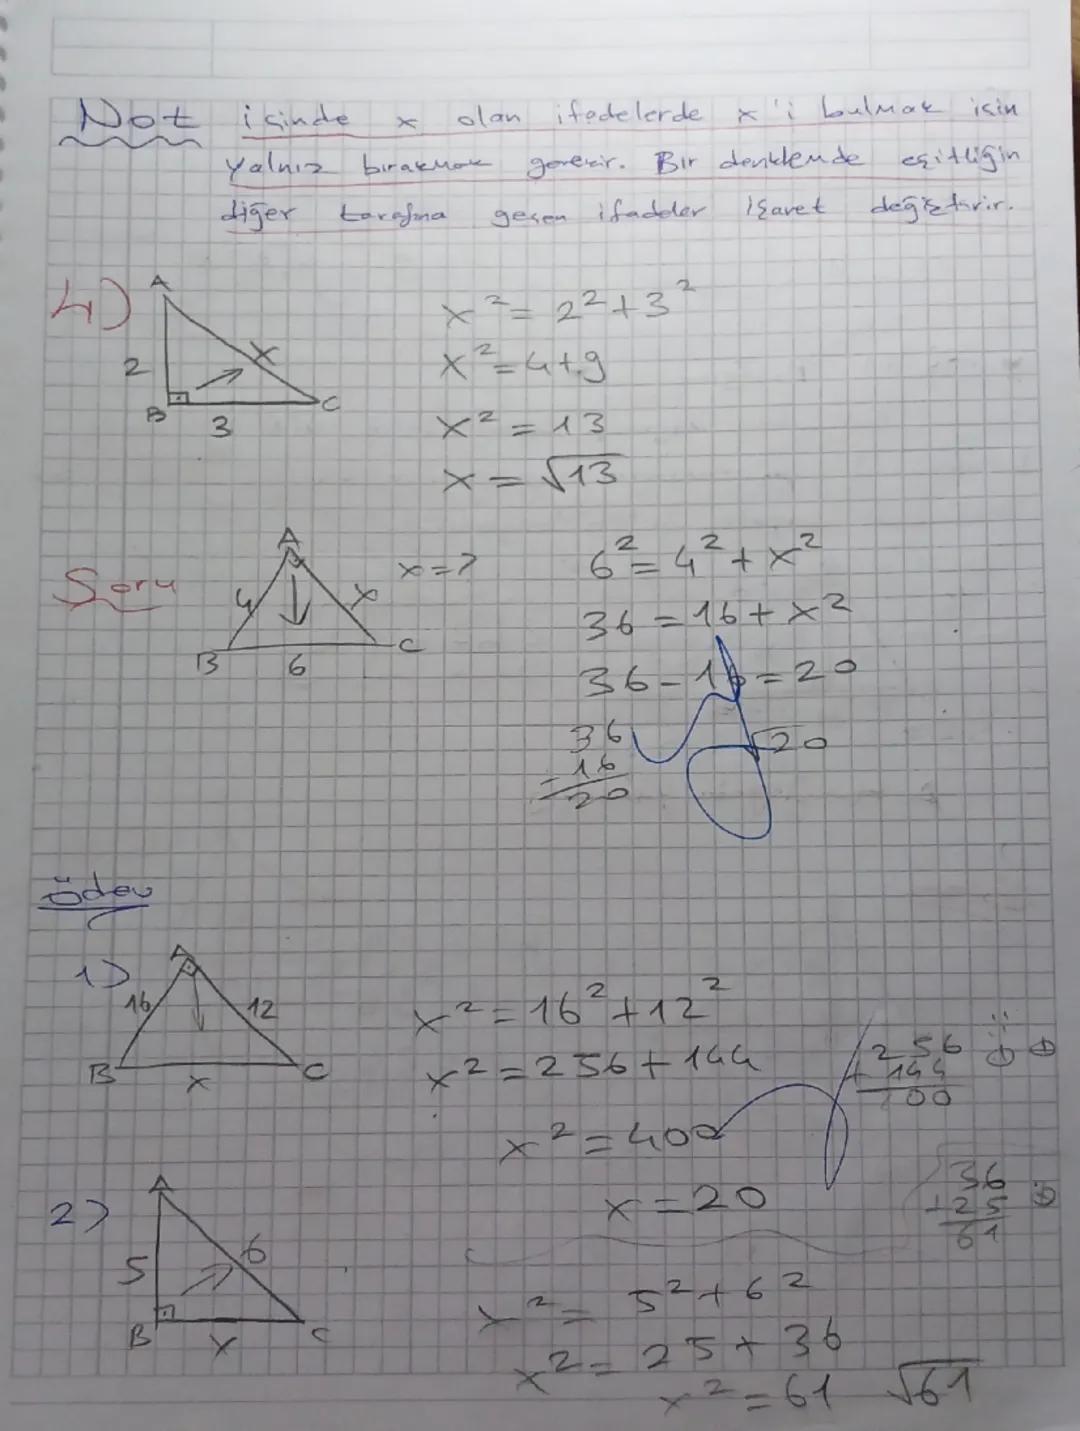 Not içinde x olan ifadelerde x'i bulmak için
yalnız bırakmak gerekir. Bir denklemde eşitliğin
diğer tarafına geçen ifadeler işaret değiştirir.
4)
A
2
x
B
3
C
x² = 2² + 3²
x² = 4 + 9
x² = 13
x = √13
Soru
A
4
x
B
6
C
x = ?
6² = 4² + x²
36 = 16 + x²
36 - 16 = 20
36
- 16
20
√20
Ödev
1)
A
16
12
B
x
C
x² = 16² + 12²
x² = 256 + 144
x² = 400
x = 20
256
+ 144
400
2)
A
5
6
B
x
C
36
+ 25
61
x² = 5² + 6²
x² = 25 + 36
x² = 61 √61